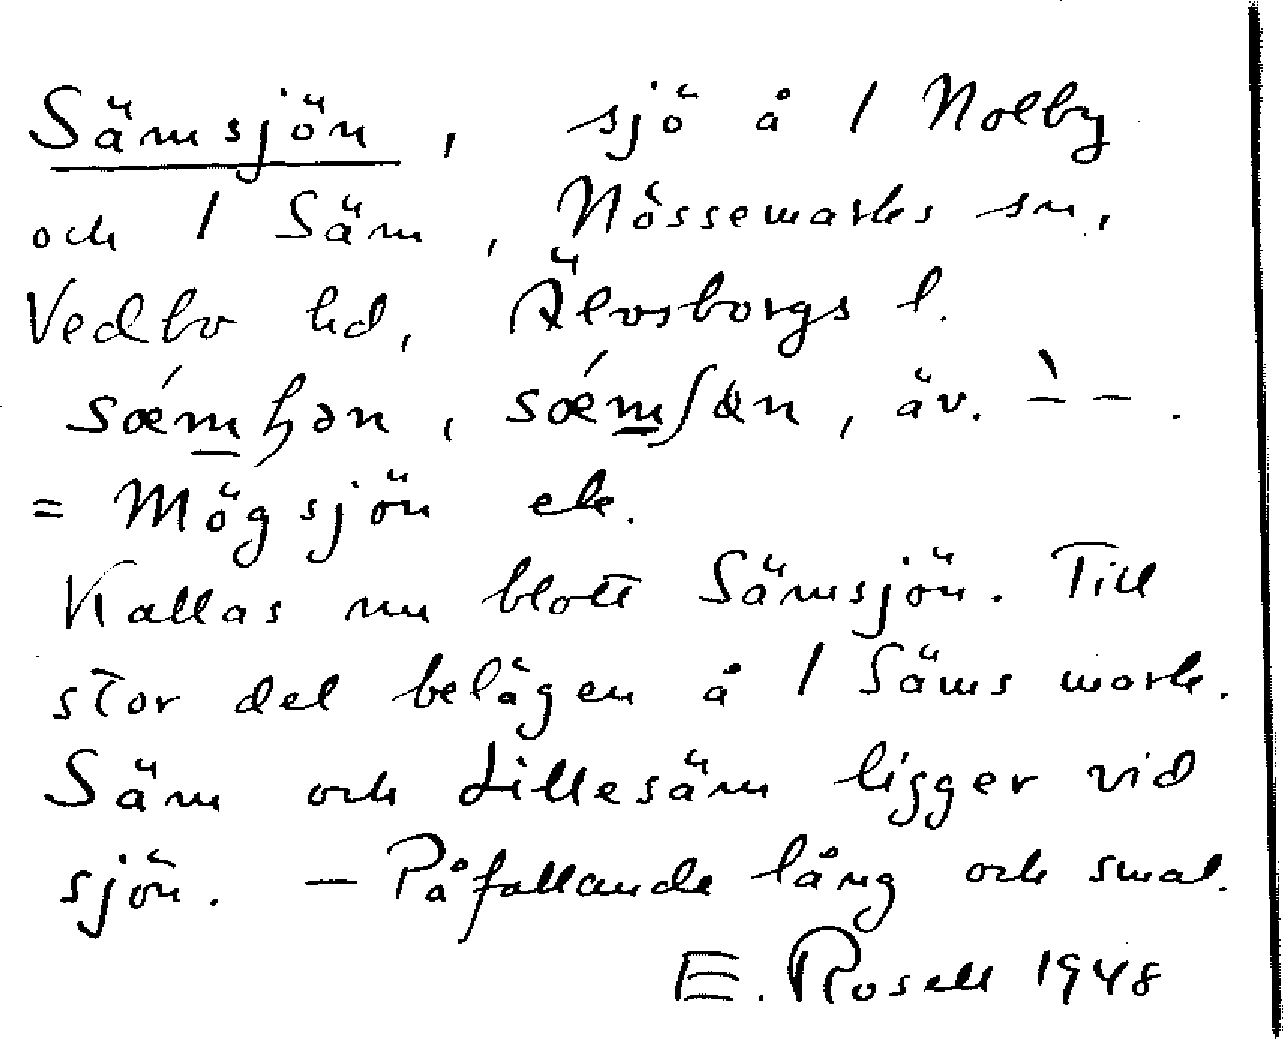 Sämsjön, sjö å 1 Nolby
och 1 Säm, Nössemarks sn,
Vedbo hd, Älvsborgs l.
säm, säm, äv. `- -.
= Mögsjön ek.
Kallas nu blott Sämsjön. Till
stor del belägen å 1 Säms mark.
Säm och Lillesäm ligger vid
sjön. — Påfallande lång och smal.
E. Rosell 1948